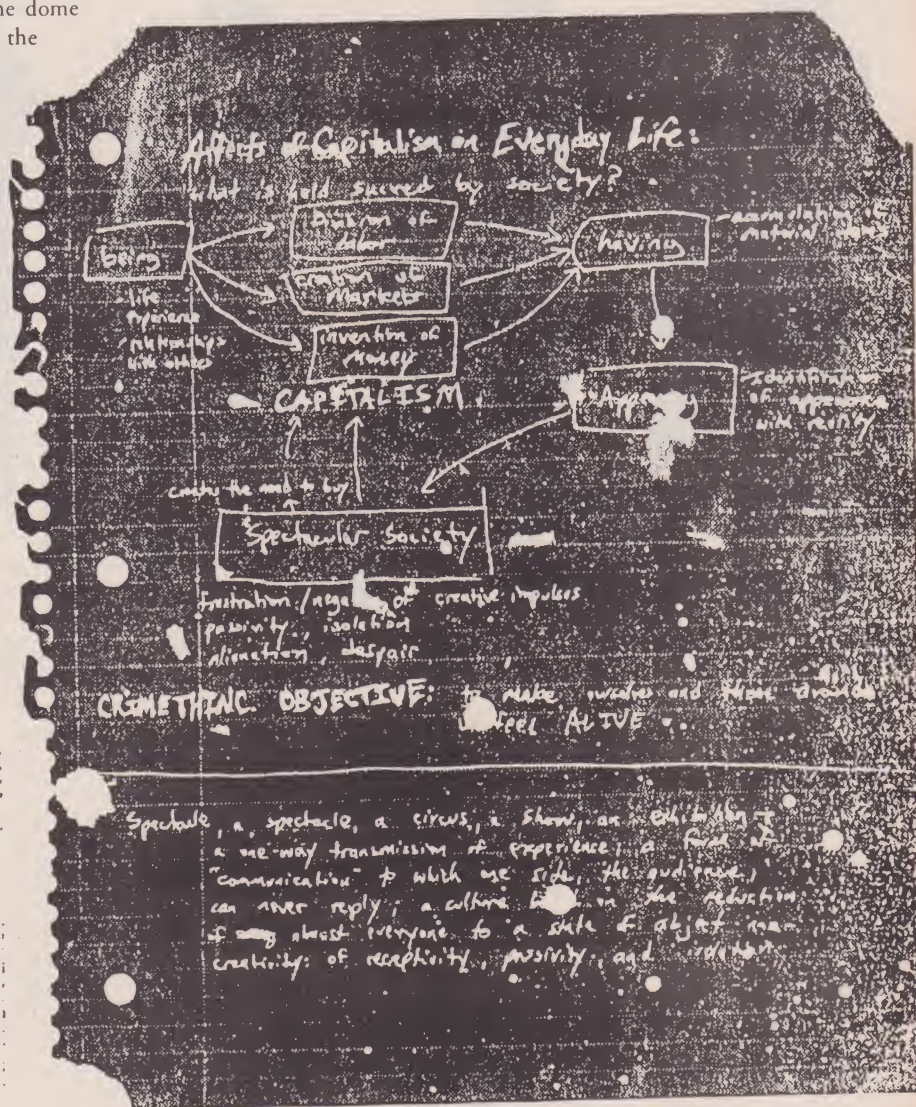 ne dome
the
Affects of Capitalism on Everyday Life:
What is held sacred by society?
being
- life
experience
- relationships
with others
Division of
labor
creation of
markets
invention of
money
CAPITALISM
having
- accumulation of
material
Identification
of appearance
with reality
creates the need to buy
Spectacular Society
frustration/ of creative impulses
passivity, isolation
alienation, despair
CRIMETHINC. OBJECTIVE: to make ourselves and those around
us feel ALIVE
Spectacle, a spectacle, a circus, a show, an exhibition -
a one-way transmission of experience; a form of
"communication" to which one side, the audience,
can never reply; a culture based on the reduction
of almost everyone to a state of abject non-
creativity: of receptivity, passivity, and isolation